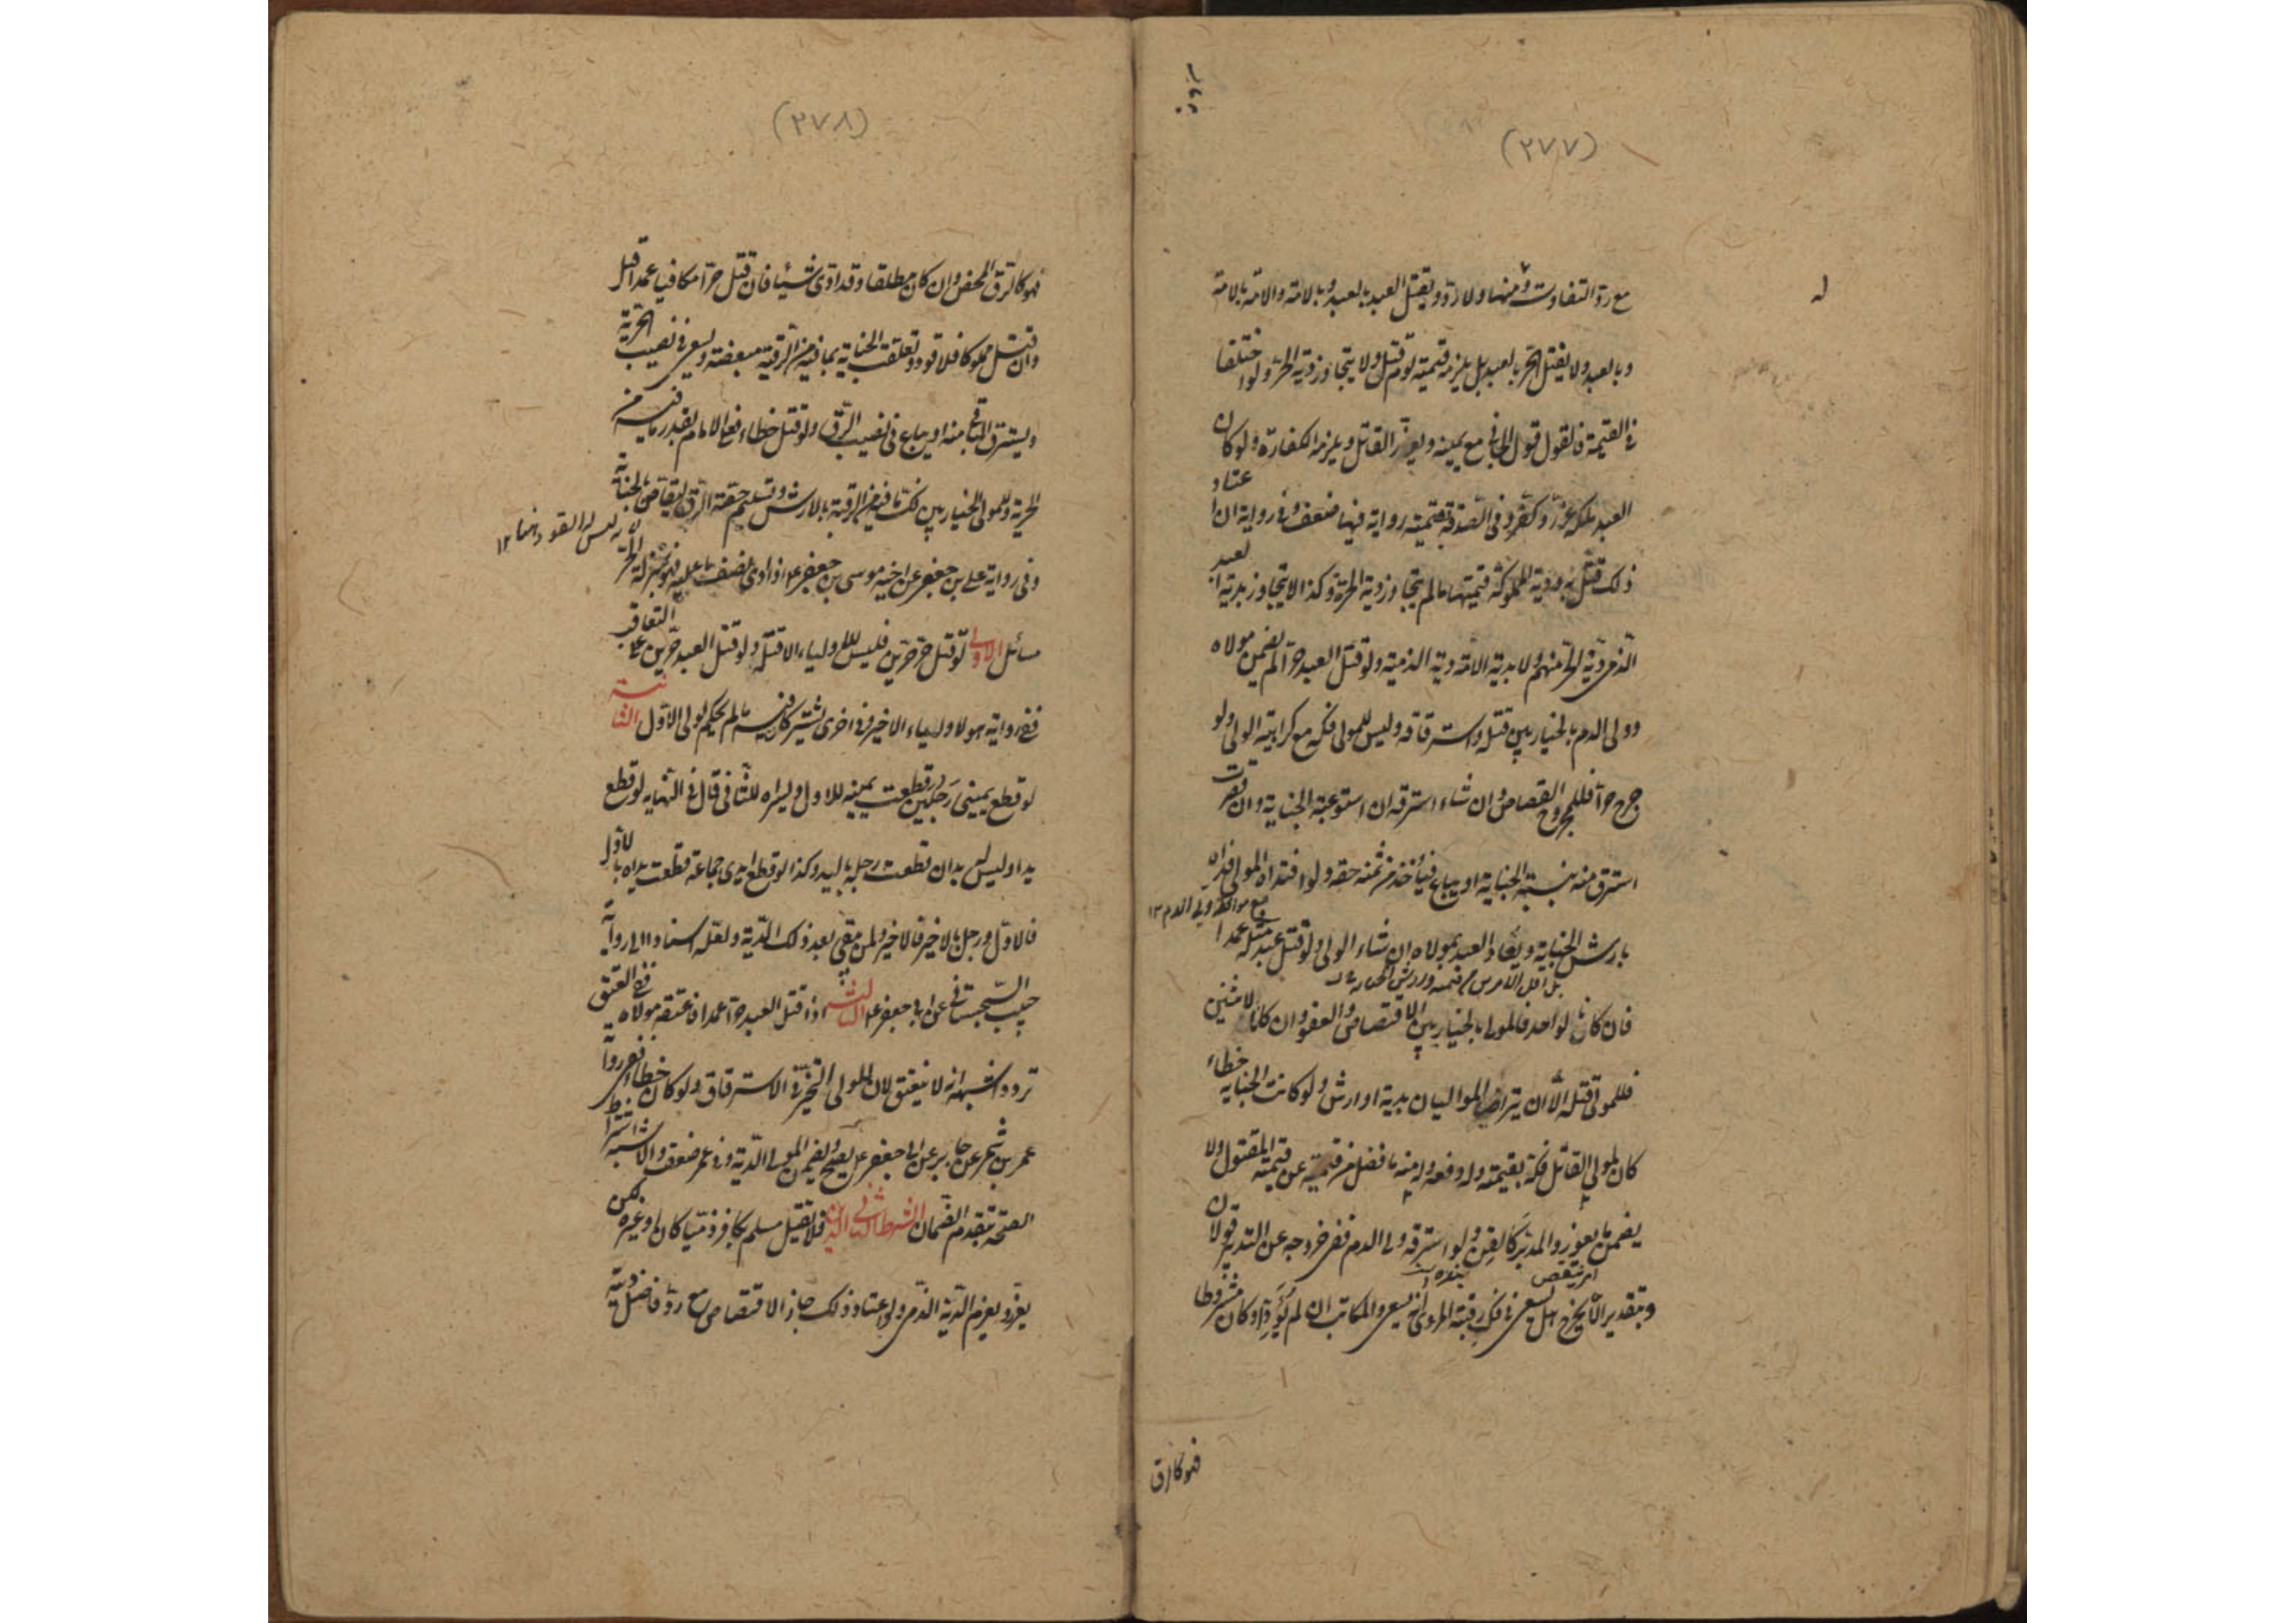 (٢٧٧)
مع ردّ التفاوت منها ولا ردّ ويقتل العبد بالعبد وبالامة والامة بالامة
وبالعبد ولا يقتل الحر بالعبد بل يلزمه قيمته يوم قتل ولا يتجاوز دية الحر ولو اختلفا
في القيمة فالقول قول الجاني مع يمينه ويعزر القاتل ويلزمه الكفارة ولو كان
العبد ملكه عزر وكفر وفي الصدقة بقيمته رواية فيها ضعف وفي رواية ان اعتاد
ذلك قتل به ودية المملوكة قيمتها ما لم يتجاوز دية الحرة وكذا لا يتجاوز بدية العبد
الذمي دية الحر منهم ولا بدية الامة دية الذمية ولو قتل العبد حرا لم يضمن مولاه
وولي الدم بالخيار بين قتله واسترقاقه وليس للمولى فكه مع كراهية الولي ولو
جرح حرا فللمجروح القصاص وان شاء استرقه ان استوعبته الجناية وان قصرت
استرق منه بنسبة الجناية او يباع فيأخذ من ثمنه حقه ولو افتداه المولى فداه
بارش الجناية ويقاد العبد بمولاه ان شاء الولي ولو قتل عبد مثله عمدا
فان كانا لواحد فالمولى بالخيار بين الاقتصاص والعفو وان كانا لاثنين
فللمولى قتله الا ان يتراضى الموليان بدية او ارش ولو كانت الجناية خطاء
كان لمولى القاتل فكه بقيمته وله دفعه وله منه ما فضل من قيمته عن قيمة المقتول ولا
يضمن ما يعوز والمدبر كالقن ولو استرقه ولي الدم ففي خروجه عن التدبير قولان
وبتقدير الا يخرج هل يسعى في فك رقبته المروي انه يسعى والمكاتب ان لم يؤد او كان مشروطا
فهو كالرق
(٢٧٨)
فهو كالرق المحض وان كان مطلقا وقد ادى شيئا فان قتل حرا مكافيا عمدا قتل
وان قتل مملوكا فلا قود وتعلقت الجناية بما فيه من الرقية مبعضة ويسعى في نصيب الحرية
ويسترق الباقي منه او يباع في نصيب الرق ولو قتل خطاء فعلى الامام بقدر ما فيه من
الحرية وللمولى الخيار بين فك ما فيه من الرقية بالارش وتسليم حصة الرق ليقاص بالجناية
وفي رواية علي بن جعفر عن اخيه موسى بن جعفر ع اذا ادى نصف ما عليه فهو بمنزلة الحر
مسائل الاولى لو قتل حر حرين فليس للاولياء الا قتله ولو قتل العبد حرين على التعاقب
ففي رواية هو لاولياء الاخير وفي اخرى يشتركان فيه ما لم يحكم لولي الاول الثانية
لو قطع يمنى رجلين قطعت يمينه للاول ويسراه للثاني قال في النهاية لو قطع
يدا وليس له يدان قطعت رجله باليد وكذا لو قطع ايدي جماعة قطعت يداه بالاول
فالاول ورجله بالاخير فالاخير ولمن يبقى بعد ذلك الدية ولعله استنادا الى رواية
حبيب السجستاني عن ابي جعفر ع الثالثة اذا قتل العبد حرا عمدا فاعتقه مولاه ففي العتق
تردد اشبهه انه لا ينعتق لان للولي التخير في الاسترقاق ولو كان خطاء ففي رواية
عمر بن شمر عن جابر عن ابي جعفر ع يصح ويضمن المولى الدية وفي عمر ضعف والاشبه اشتراط
الصحة بتقدم الضمان الشرط الثاني الدين فلا يقتل مسلم بكافر ذميا كان او غيره لكن
يعزر ويغرم الدية الذمي ولو اعتاد ذلك جاز الاقتصاص مع رد فاضل ديته